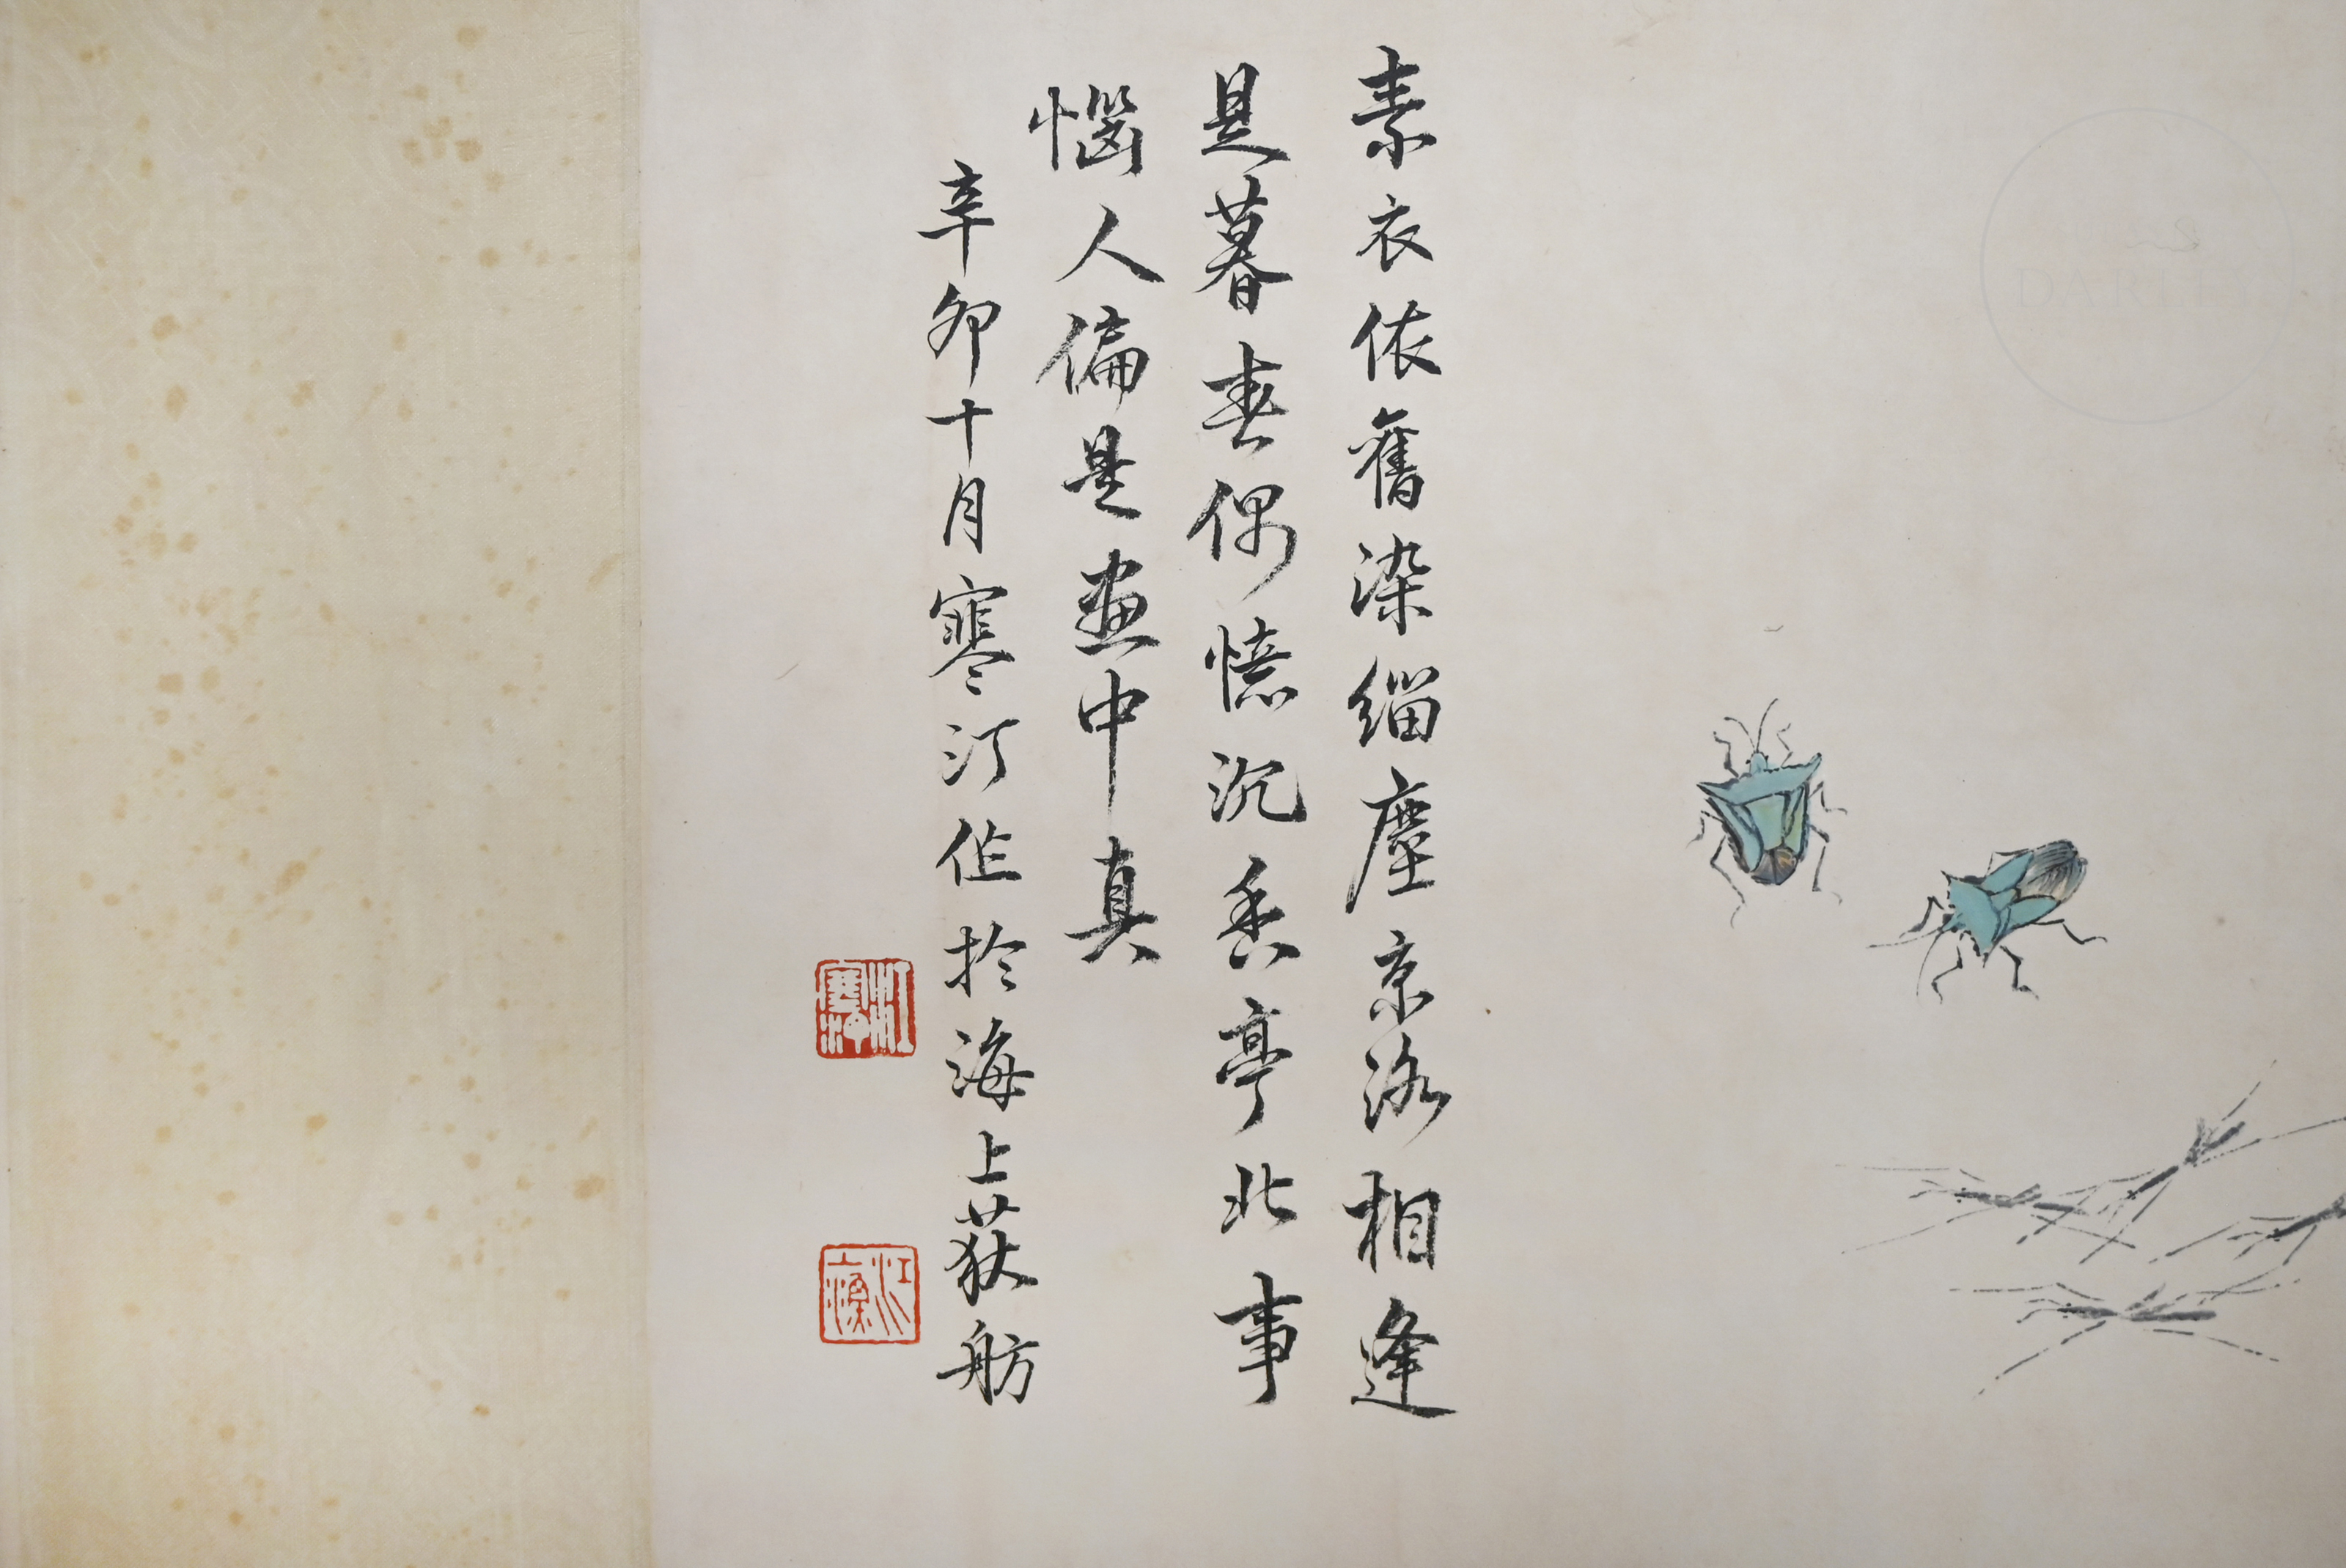 素衣依舊染緇塵京洛相逢
是暮春偶憶沉香亭北事
惱人偏是畫中真
辛卯十月寒汀作於海上荻舫
江寒汀
DARLEY